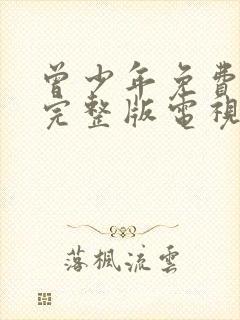 曾少年免費
完整版電視
落楓流雲